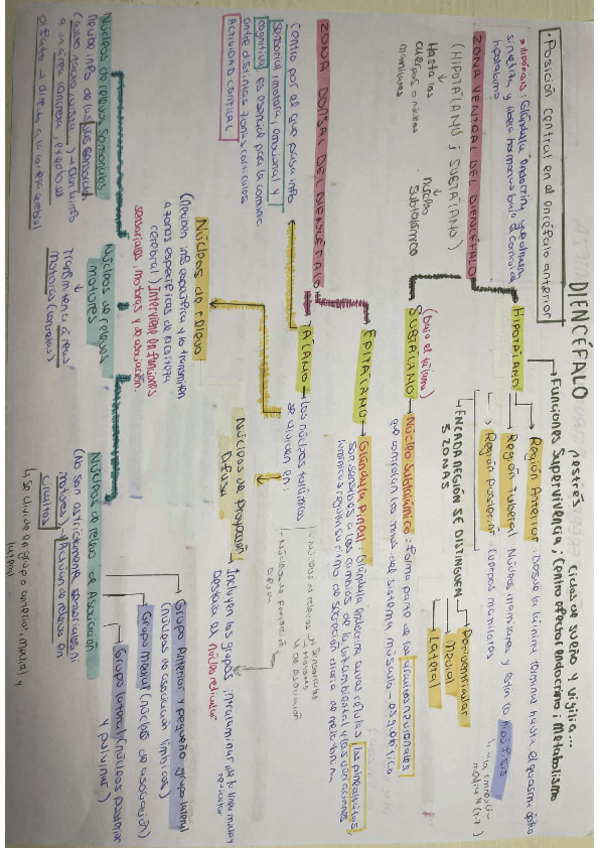 DIENCÉFALO
estrés
Ciclos de sueño y vigilia...
Funciones Supervivencia; Centro efector endocrino i Metabolismo
· Posición central en el encéfalo anterior
* Hipófisis: Glándula Endocrina que almacena
sintetiza y libera hormonas bajo el control del
hipotálamo
ZONA VENTRAL DEL DIENCÉFALO
(HIPOTÁLAMO i SUBTÁLAMO)
Hasta los
cuerpos o núcleos
mamilares
núcleo
Subtalámico
HIPOTÁLAMO
Región Anterior: Desde la lámina terminal hasta el quiasma óptico
Región Tuberal: Núcleos mamilares y está la Hipófisis
Región Posterior: Cuerpos mamilares
EN CADA REGIÓN SE DISTINGUEN
3 ZONAS
Periventricular
Medial
Lateral
SUBTÁLAMO
(bajo el tálamo)
Núcleo Subtalámico: Forma parte de los circuitos neuronales
que controlan los mvs del sistema músculo-esquelético
ZONA DORSAL DEL DIENCÉFALO
EPITÁLAMO
Glándula Pineal: Glándula endocrina cuyas células, los pinealocitos,
son sensibles a los cambios de la luz ambiental y las variaciones
lumínicas regulan su ritmo de secreción diaria de melatonina
TÁLAMO
Los núcleos talámicos
se dividen en:
- Núcleos de relevo
Sensoriales
Motores
de asociación
- Núcleos de proyección
difusa
Centro por el que pasa info
sensorial, motora, emocional y
cognitiva, es esencial para la comunic
entre distintas zonas corticales
ACTIVIDAD CORTICAL
Núcleos de relevo
(Reciben info específica y la transmiten
a zonas específicas de la corteza
cerebral) Intervienen en funciones
sensoriales, motoras y de asociación.
Núcleos de Proyección
Difusa
Incluyen los grupos intralaminar, de la línea media y
reticular
Destaca el núcleo reticular
Núcleos de relevo sensoriales
a un área concreta, excepto el
olfato → directa a la corteza cerebral
Núcleos de relevos
motores
Transmiten info a áreas
motoras (concretas)
Núcleos de relevo de Asociación
(No son estrictamente sensoriales ni
motores)
circuitos
Se divide en grupo anterior, medial y
lateral
Grupo Anterior y pequeño grupo lateral
(núcleos de asociación límbicos)
Grupo Medial (núcleos de asociación)
Grupo lateral (núcleos posterior
y pulvinar)